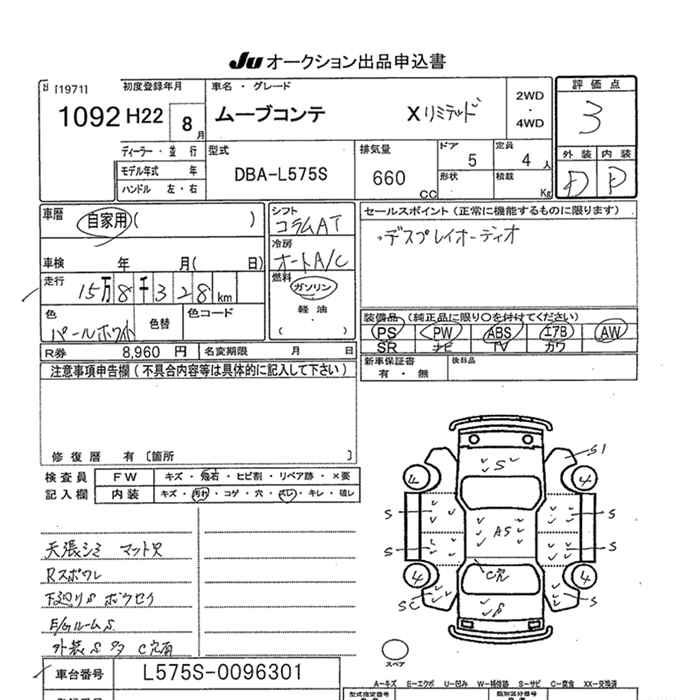 Ju オークション出品申込書
[1971]
1092
初度登録年月
H22 8月
車名・グレード
ムーブコンテ Xリミテッド
2WD・4WD
評価点
3
ディーラー・並行
モデル年式 年
ハンドル 左・右
型式
DBA-L575S
排気量
660 cc
ドア
5
定員
4人
形状
積載 Kg
外装 内装
D D
車歴
自家用( )
シフト
コラムAT
セールスポイント(正常に機能するものに限ります)
・デスプレイオーディオ
冷房
オートA/C
車検 年 月( 日)
走行
15万8千328km
燃料
ガソリン
軽油
( )
色
パールホワイト
色替
色コード
装備品(純正品に限り○を付けてください)
PS PW ABS エアB AW
SR ナビ TV カワ
R券 8,960 円
名変期限 月 日
新車保証書
有・無
後日品
注意事項申告欄(不具合内容等は具体的に記入して下さい)
修復歴 有〔箇所 〕
検査員
記入欄
FW キズ・飛石・ヒビ割・リペア跡・×要
内装 キズ・汚れ・コゲ・穴・スレ・キレ・破レ
天張シミ マット欠
Rスポワレ
下廻りS ボウセイ
E/GルームS
外装S多 C穴有
S
S1
4
4
S
S
AS
S
S
C穴
4
4
SC
S
S
スペア
車台番号 L575S-0096301
A―キズ E―エクボ U―凹み W―補修跡 S―サビ C―腐食 XX―交換済
型式指定番号
類別区分番号